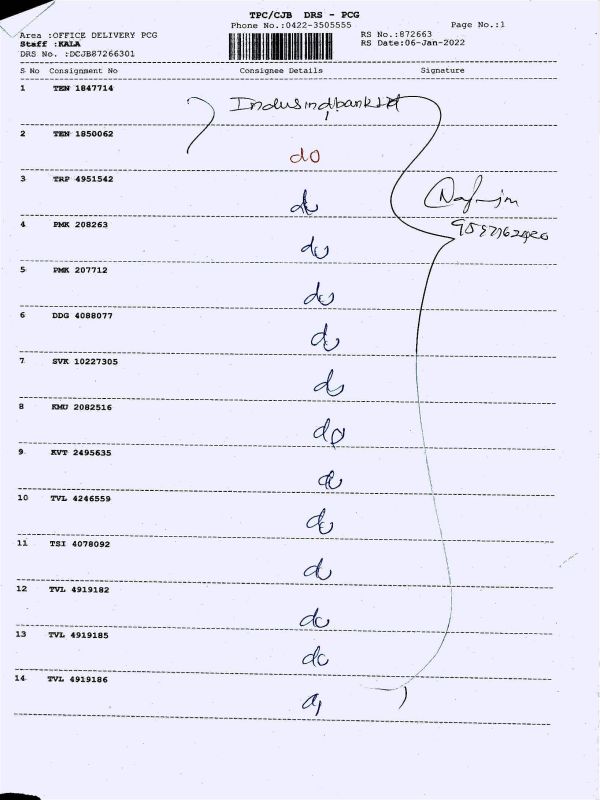 TPC/CJB DRS - PCG
Phone No.:0422-3505555
Page No.:1
Area :OFFICE DELIVERY PCG
RS No.:872663
Staff :KALA
RS Date:06-Jan-2022
DRS No. :DCJB87266301
S No Consignment No Consignee Details Signature
1 TEN 1847714
Indusind bank Ltd
2 TEN 1850062
do
3 TRP 4951542
do
4 PMK 208263
do
5 PMK 207712
do
6 DDG 4088077
do
7 SVK 10227305
do
8 KMU 2082516
do
9 KVT 2495635
do
10 TVL 4246559
do
11 TSI 4078092
do
12 TVL 4919182
do
13 TVL 4919185
do
14 TVL 4919186